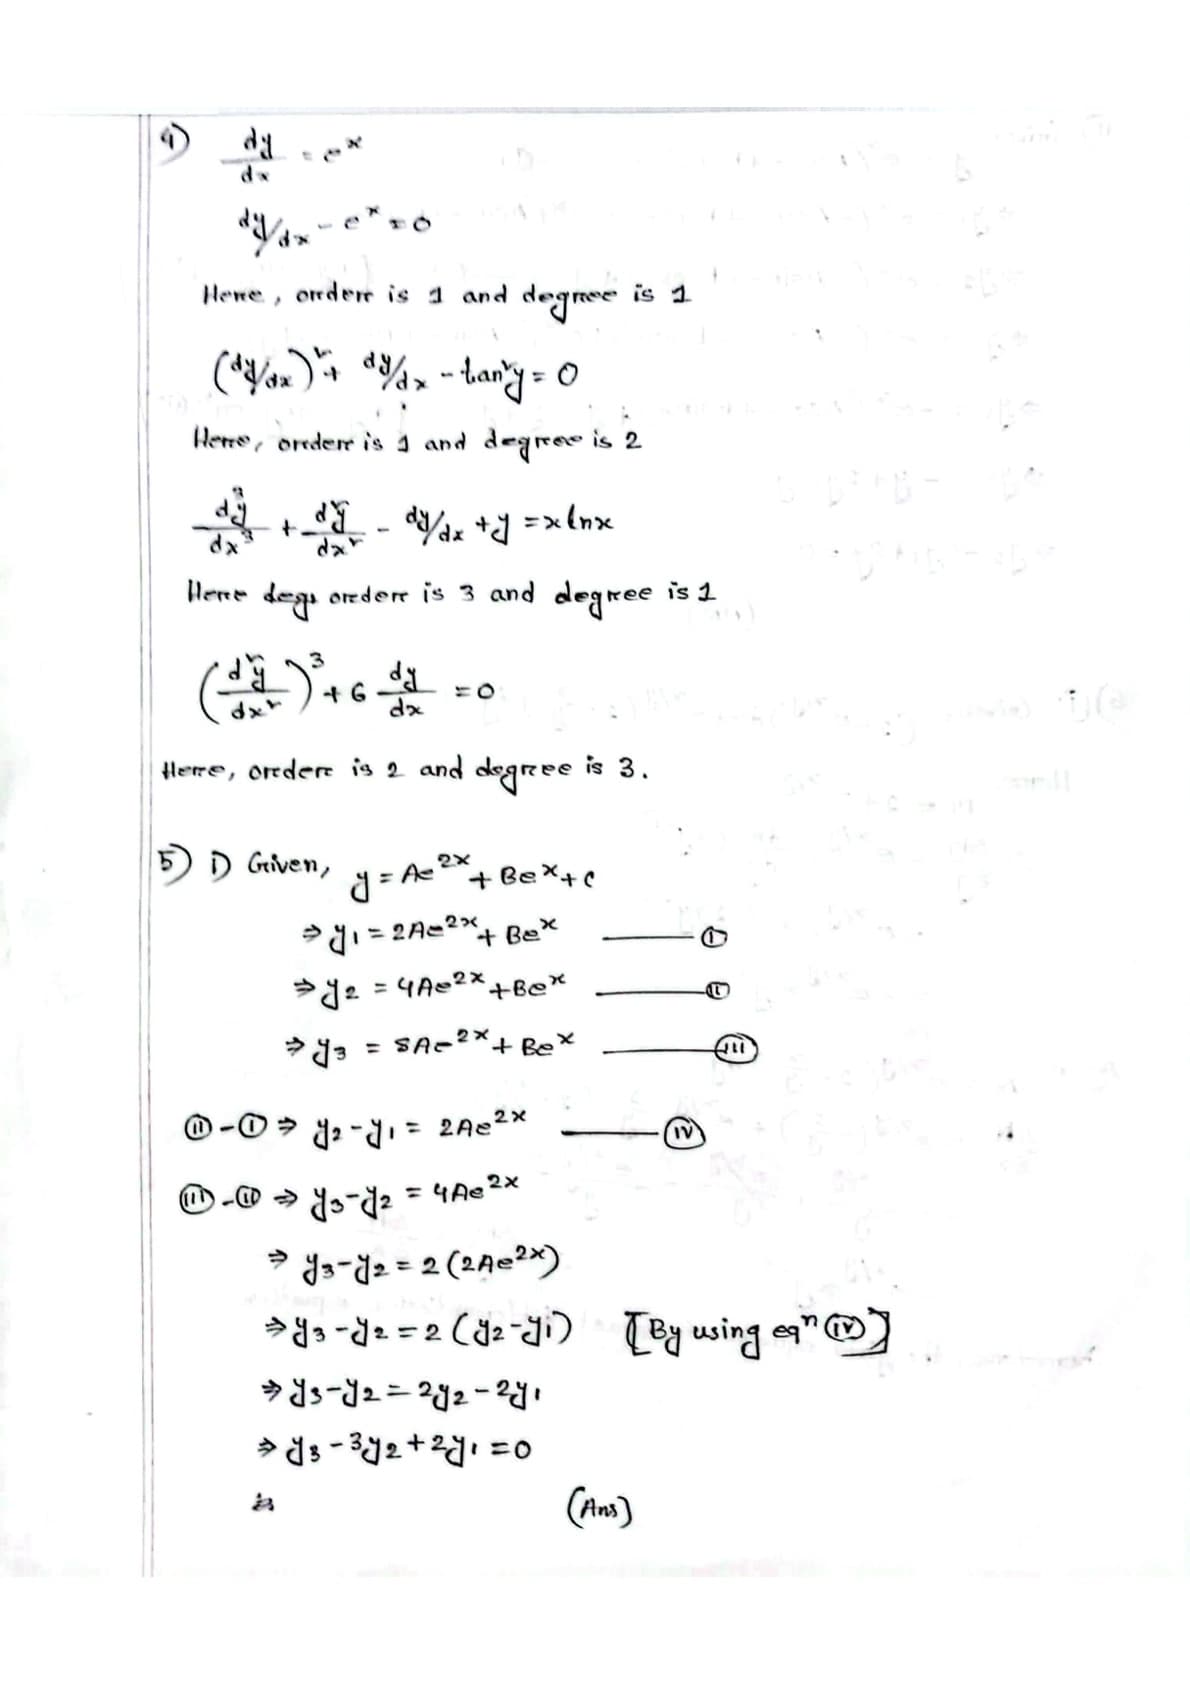 4) dy/dx = e^x
dy/dx - e^x = 0
Here, order is 1 and degree is 1
(dy/dx)² + dy/dx - tan²y = 0
Here, order is 1 and degree is 2
d³y/dx³ + d²y/dx² - dy/dx + y = x lnx
Here degs order is 3 and degree is 1
(d²y/dx²)³ + 6 dy/dx = 0
Here, order is 2 and degree is 3.
5) i) Given, y = Ae^2x + Be^x + c
⇒ y₁ = 2Ae^2x + Be^x —— (i)
⇒ y₂ = 4Ae^2x + Be^x —— (ii)
⇒ y₃ = 8Ae^2x + Be^x —— (iii)
(ii) - (i) ⇒ y₂ - y₁ = 2Ae^2x —— (iv)
(iii) - (ii) ⇒ y₃ - y₂ = 4Ae^2x
⇒ y₃ - y₂ = 2 (2Ae^2x)
⇒ y₃ - y₂ = 2 (y₂ - y₁) [By using eqⁿ (iv)]
⇒ y₃ - y₂ = 2y₂ - 2y₁
⇒ y₃ - 3y₂ + 2y₁ = 0
(Ans)